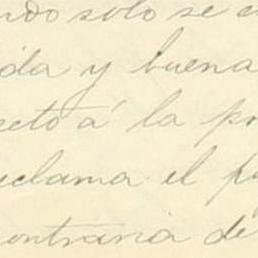 ndo solo se e
ida y buena
eto á la po
eclama el p
ontraria de